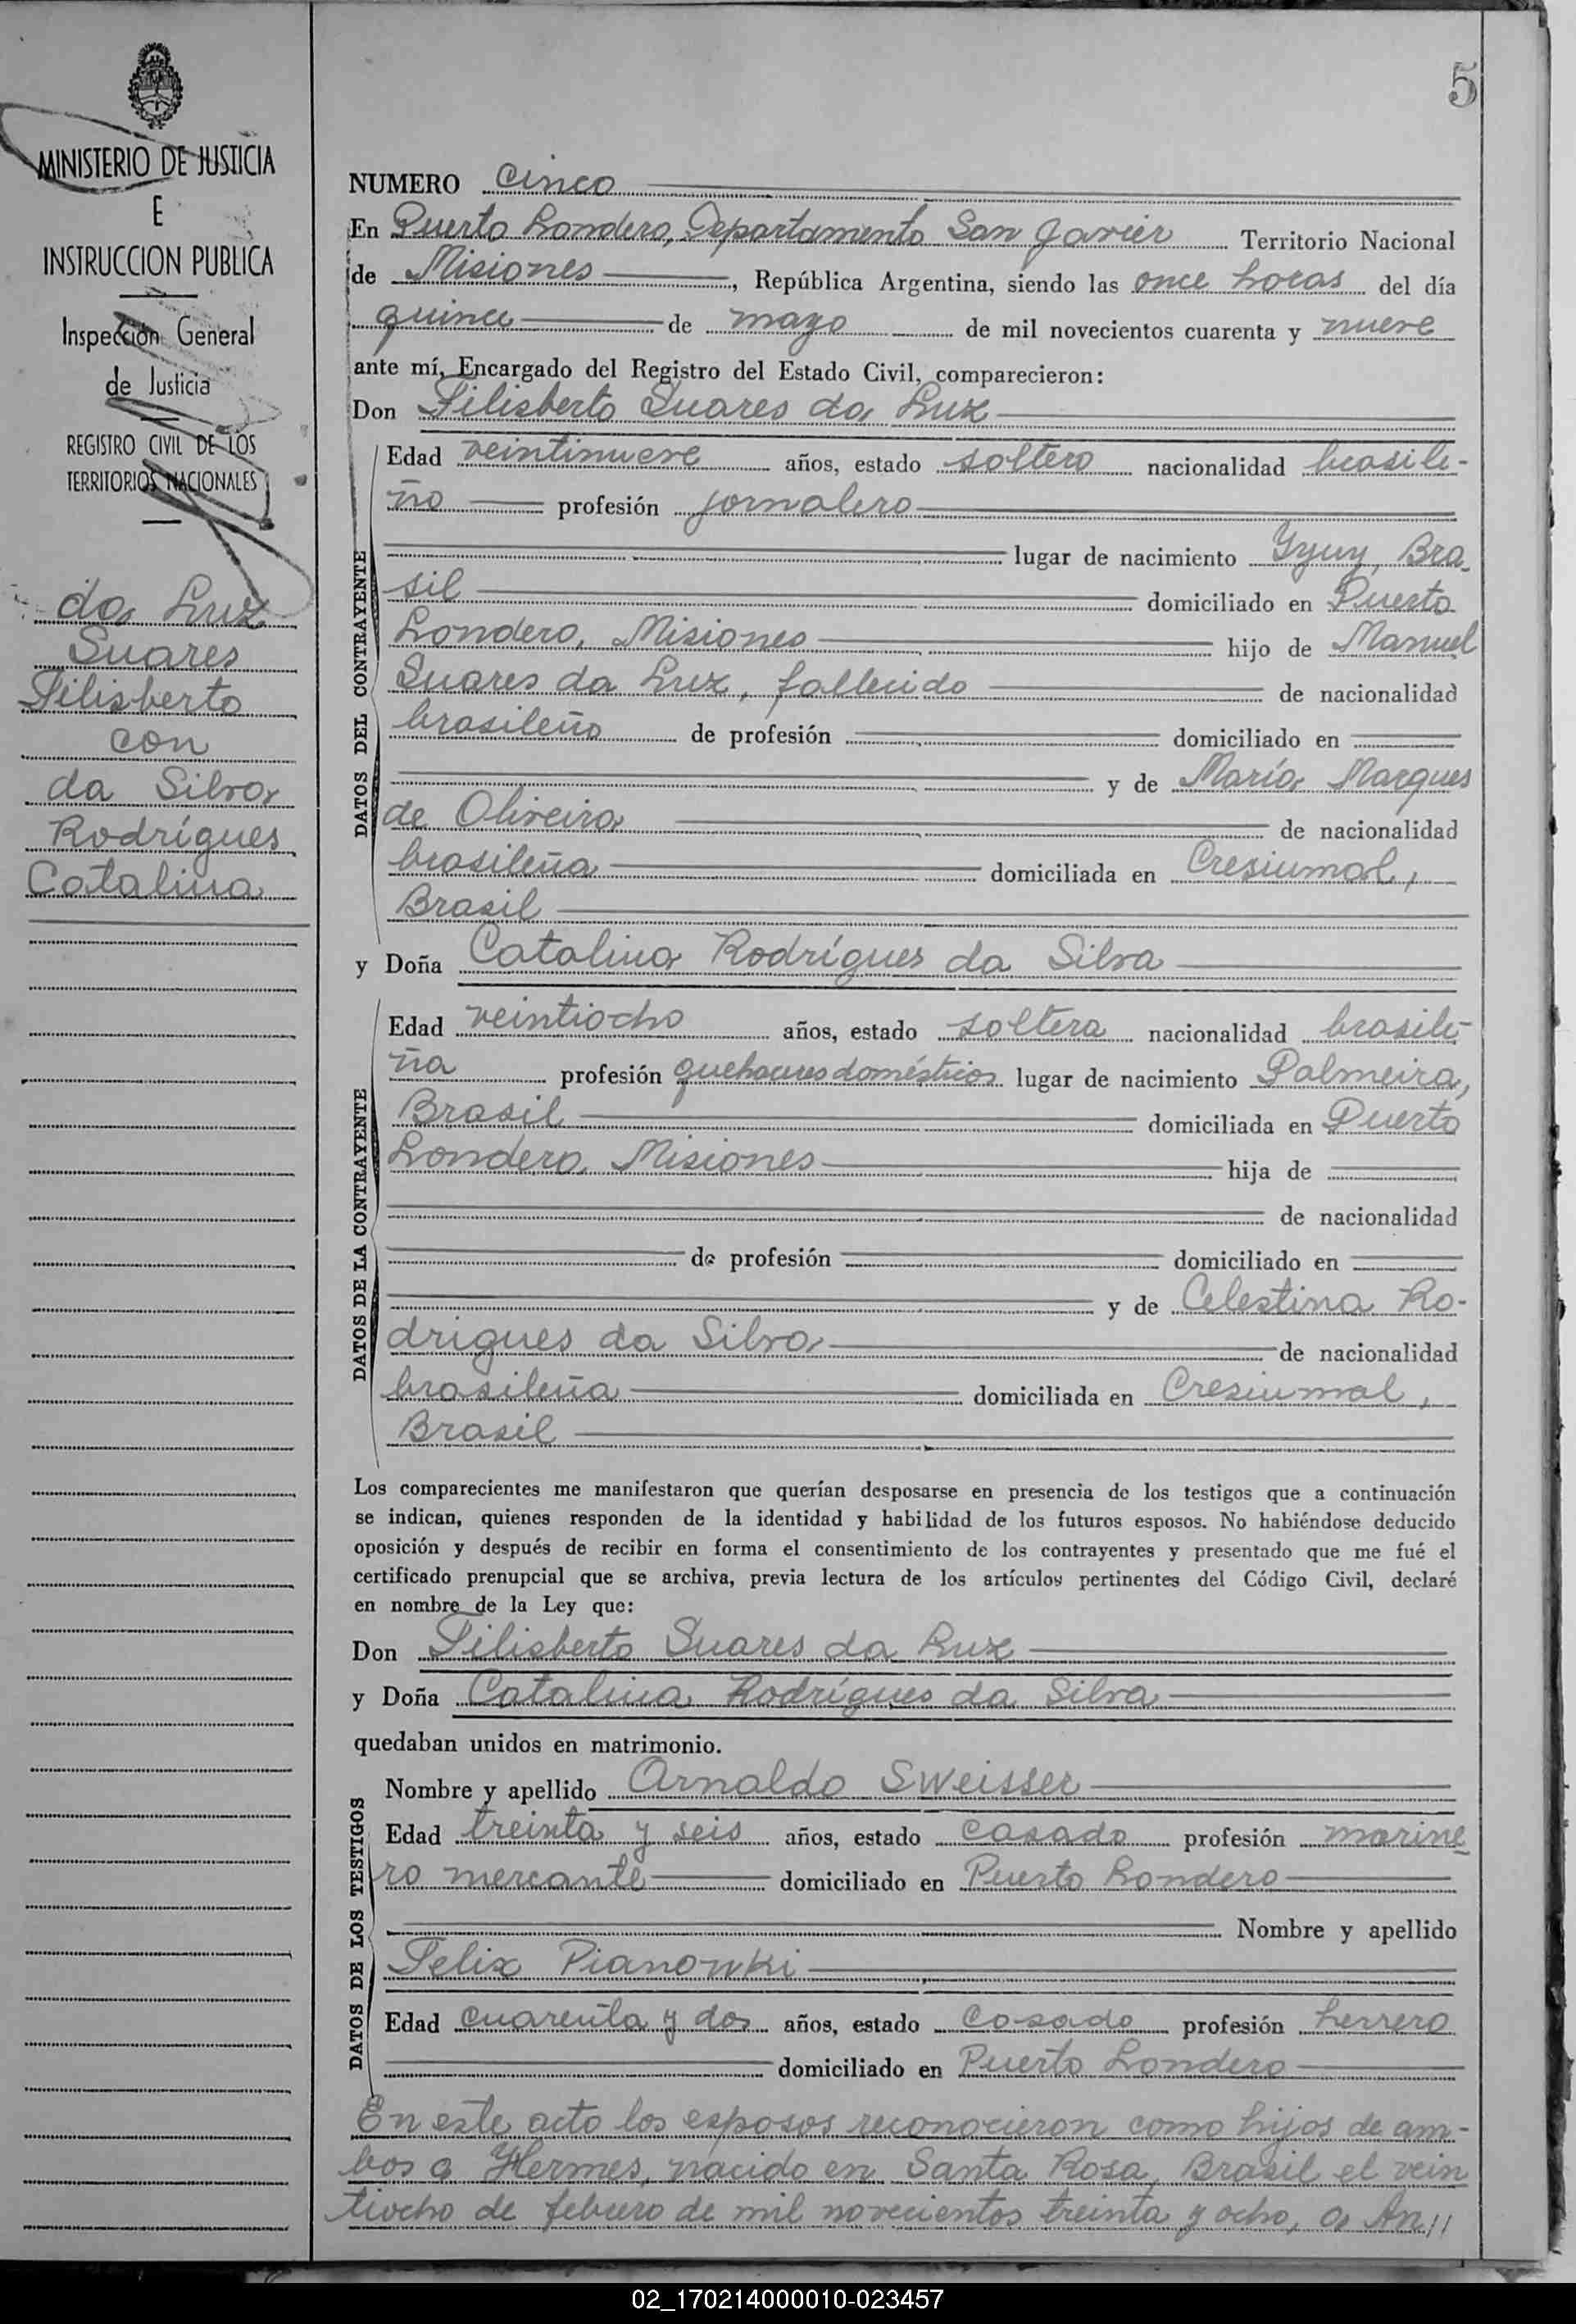 5
MINISTERIO DE JUSTICIA
E
INSTRUCCION PUBLICA
Inspección General
de Justicia
REGISTRO CIVIL DE LOS
TERRITORIOS NACIONALES
da Luz
Suares
Filisberto
con
da Silva
Rodrígues
Catalina
NUMERO cinco
En Puerto Londero, Departamento San Javier Territorio Nacional
de Misiones, República Argentina, siendo las once horas del día
quince de mayo de mil novecientos cuarenta y nueve
ante mí, Encargado del Registro del Estado Civil, comparecieron:
Don Filisberto Suares da Luz
DATOS DEL CONTRAYENTE
Edad veintinueve años, estado soltero nacionalidad brasile-
ño profesión jornalero
lugar de nacimiento Yyuy, Bra-
sil domiciliado en Puerto
Londero, Misiones hijo de Manuel
Suares da Luz, fallecido de nacionalidad
brasileño de profesión domiciliado en
y de María Marques
de Oliveira de nacionalidad
brasileña domiciliada en Cresiumal,
Brasil
y Doña Catalina Rodrígues da Silva
DATOS DE LA CONTRAYENTE
Edad veintiocho años, estado soltera nacionalidad brasile-
ña profesión quehaceres domésticos lugar de nacimiento Palmeira,
Brasil domiciliada en Puerto
Londero, Misiones hija de
de nacionalidad
de profesión domiciliado en
y de Celestina Ro-
drigues da Silva de nacionalidad
brasileña domiciliada en Cresiumal,
Brasil
Los comparecientes me manifestaron que querían desposarse en presencia de los testigos que a continuación
se indican, quienes responden de la identidad y habilidad de los futuros esposos. No habiéndose deducido
oposición y después de recibir en forma el consentimiento de los contrayentes y presentado que me fué el
certificado prenupcial que se archiva, previa lectura de los artículos pertinentes del Código Civil, declaré
en nombre de la Ley que:
Don Filisberto Suares da Luz
y Doña Catalina Rodrígues da Silva
quedaban unidos en matrimonio.
DATOS DE LOS TESTIGOS
Nombre y apellido Arnaldo Sweisser
Edad treinta y seis años, estado casado profesión marine
ro mercante domiciliado en Puerto Londero
Nombre y apellido
Felix Pianowki
Edad cuarenta y dos años, estado casado profesión herrero
domiciliado en Puerto Londero
En este acto los esposos reconocieron como hijos de am-
bos a Hermes, nacido en Santa Rosa, Brasil el vein
tiocho de febrero de mil novecientos treinta y ocho, a An//
02_170214000010-023457